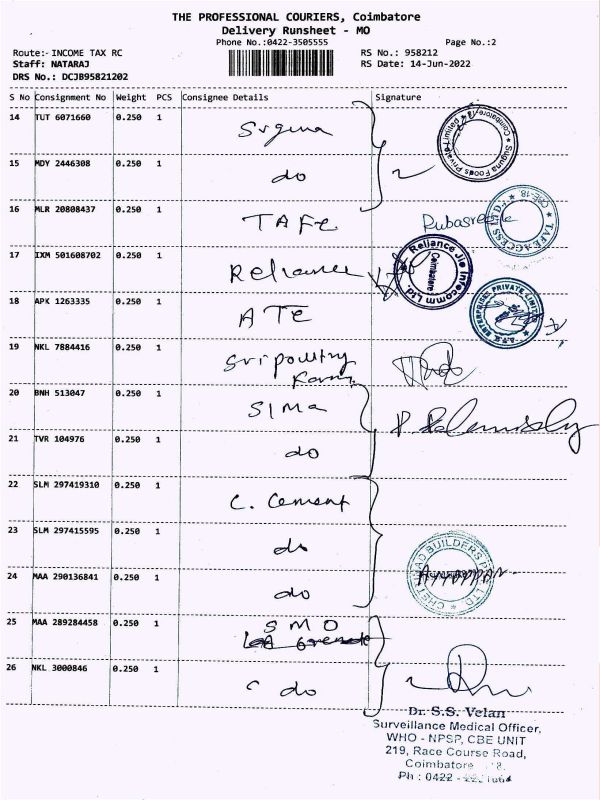 THE PROFESSIONAL COURIERS, Coimbatore
Delivery Runsheet - MO
Phone No.:0422-3505555 Page No.:2
Route:- INCOME TAX RC RS No.: 958212
Staff: NATARAJ RS Date: 14-Jun-2022
DRS No.: DCJB95821202
S No Consignment No Weight PCS Consignee Details Signature
14 TUT 6071660 0.250 1 Suguna
Suguna Foods Private Limited * Coimbatore *
15 MDY 2446308 0.250 1 do
16 MLR 20808437 0.250 1 TAFE
TAFE ACCESS LTD., * CBE-18 *
17 IXM 501608702 0.250 1 Reliance
Reliance Jio Infocomm Ltd. Coimbatore
18 APK 1263335 0.250 1 ATE
ENTERPRISES PRIVATE LIMITED
19 NKL 7884416 0.250 1 Sri poultry
Farm
20 BNH 513047 0.250 1 SIMA
21 TVR 104976 0.250 1 do
22 SLM 297419310 0.250 1 C. Cement
23 SLM 297415595 0.250 1 do
CHETTINAD BUILDERS PVT. LTD.
24 MAA 290136841 0.250 1 do
25 MAA 289284458 0.250 1 SMO
26 NKL 3000846 0.250 1 do
Dr. S.S. Velan
Surveillance Medical Officer,
WHO - NPSP, CBE UNIT
219, Race Course Road,
Coimbatore
Ph : 0422 -